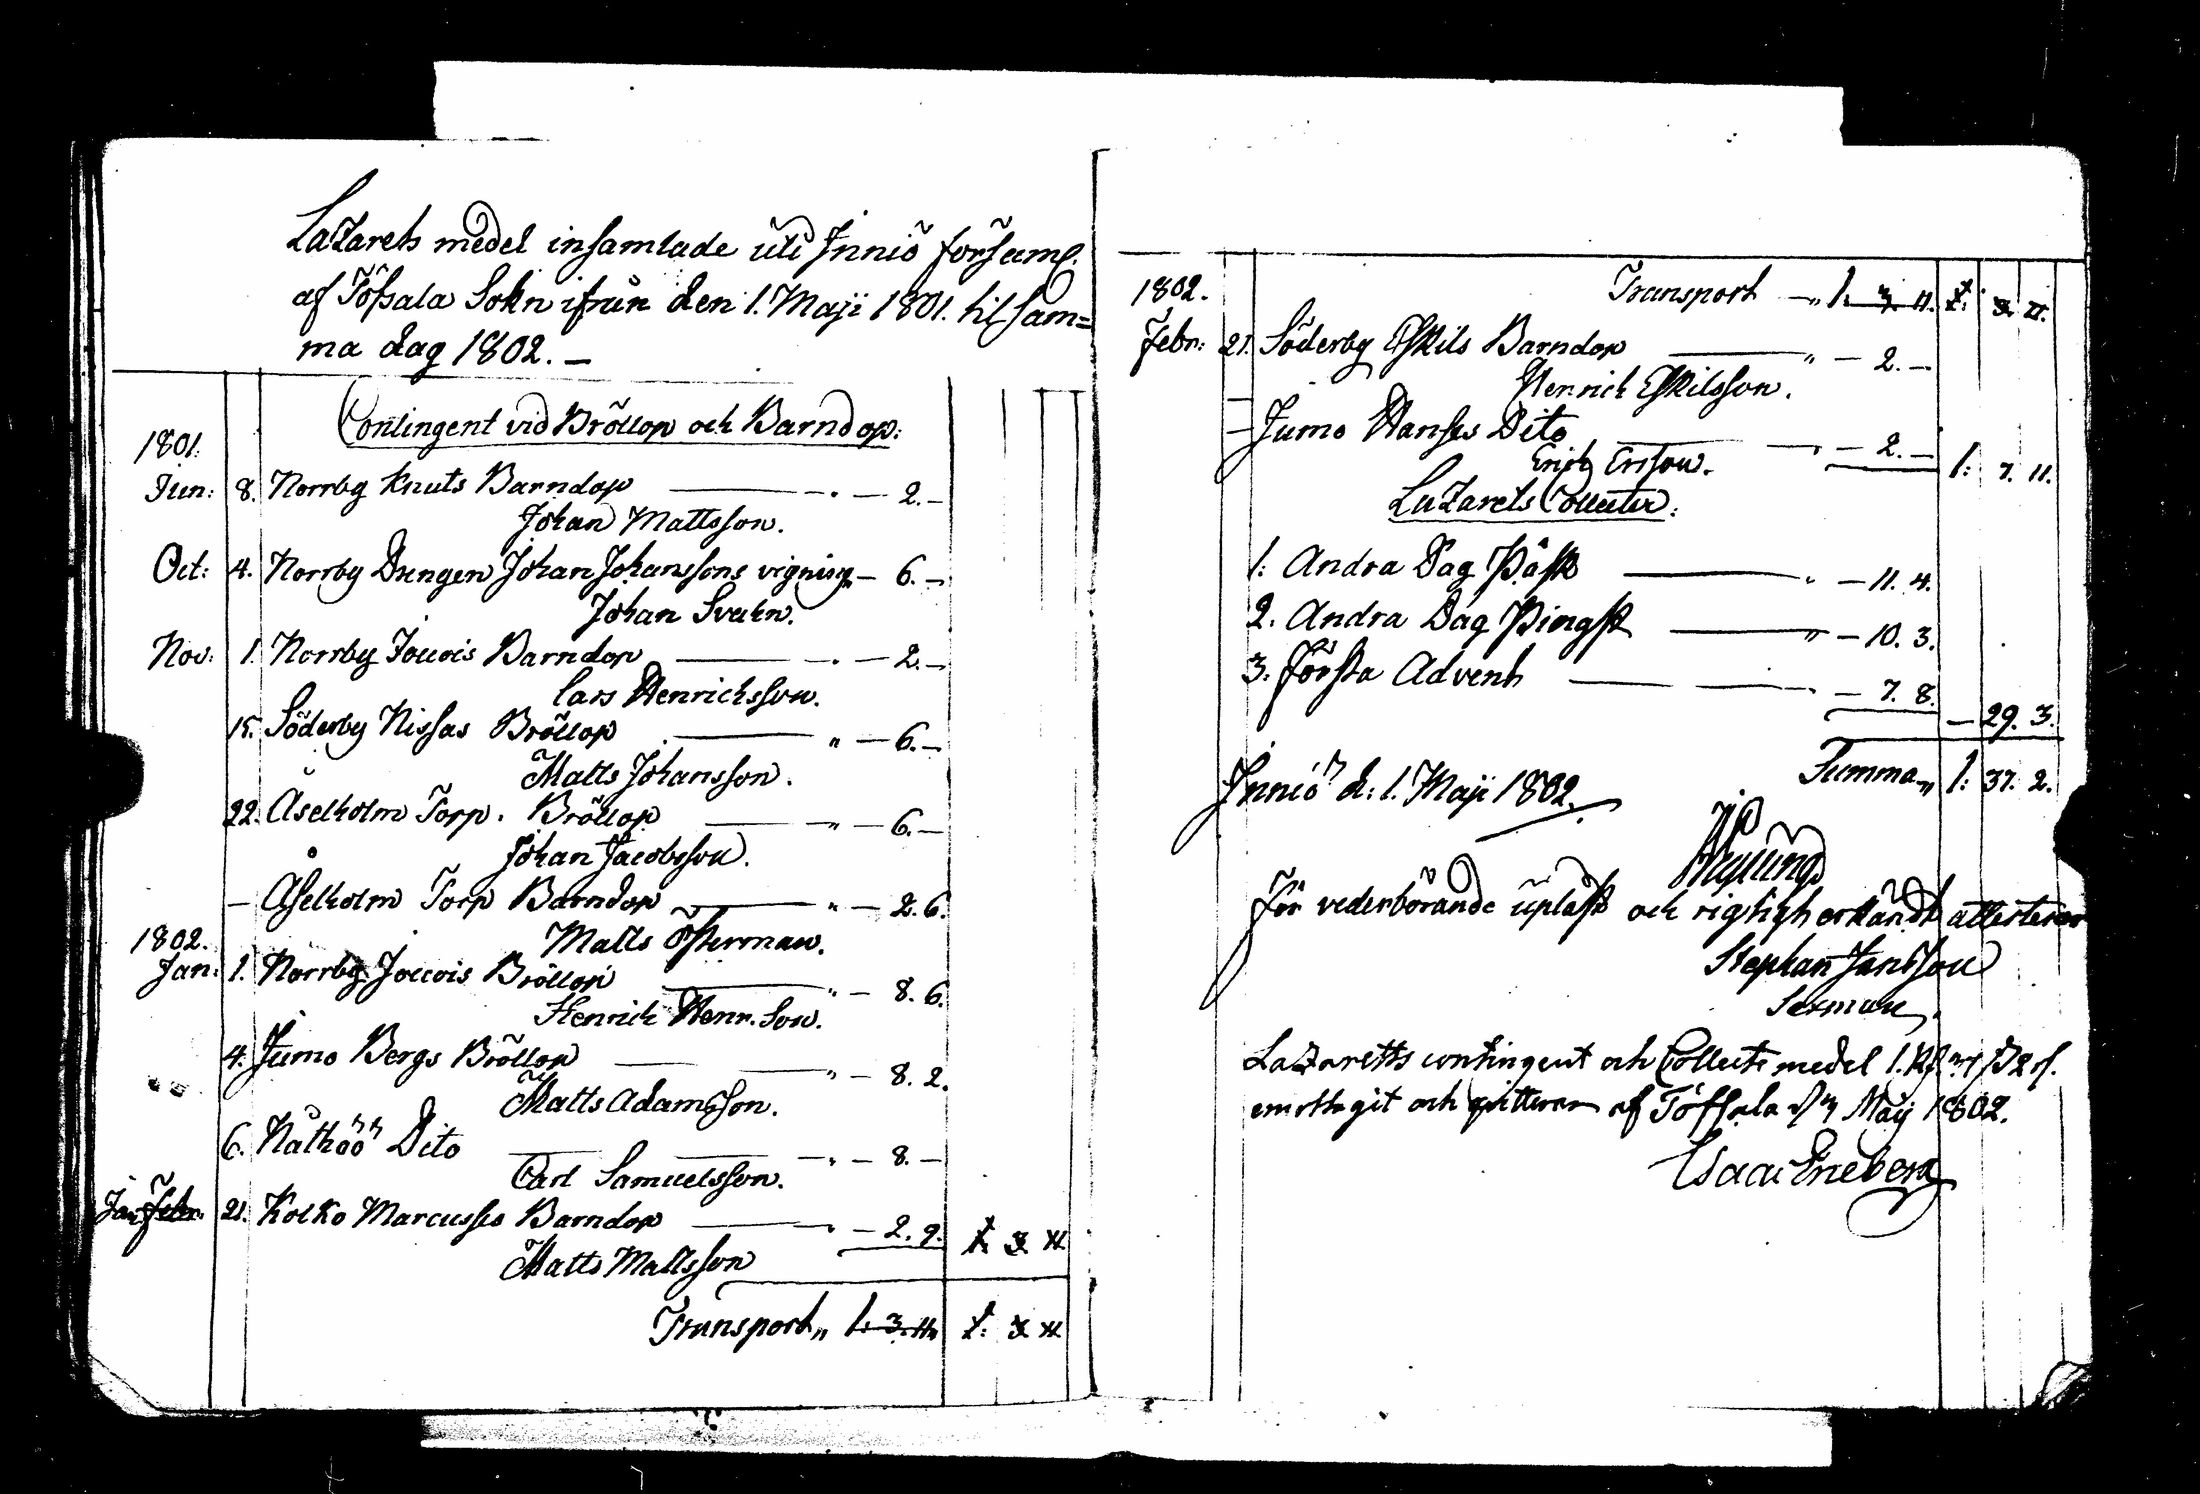 Lazarets medel insamlade uti Inniö församl.
af Töfsala Sokn ifrån den 1. Maji 1801. til sam=
ma dag 1802. —
Contingent vid Bröllop och Barndop:
1801.
Jun: 8. Norrby Knuts Barndop — " — 2. —
Johan Mattsson.
Oct: 4. Norrby Drengen Johan Johanssons vigning — 6. —
Johan Svahn.
Nov: 1. Norrby Jouois Barndop — " — 2. —
Lars Henrichsson.
15. Söderby Nissas Bröllop — " — 6. —
Matts Johansson.
22. Åselholm Torp. Bröllop — " — 6. —
Johan Jacobsson.
— Åselholm Torp Barndop — " — 2. 6.
Matts Österman.
1802.
Jan: 1. Norrby Jouois Bröllop — " — 8. 6.
Henrich Henr. Son.
4. Jumo Bergs Bröllop — " — 8. 2.
Matts Adamsson.
6. Nåtköö Dito — " — 8. —
Carl Samuelsson.
Jan Febr. 21. Kolko Marcusses Barndop — " — 2. 9. 1. 3. 11.
Matts Mattsson
Transport " 1. 3. 11. 1: 3. 11.
1802. Transport — " 1. 3. 11. 1: 3. 11.
Febr: 21. Söderby Eskils Barndop — " — 2. —
Henrich Eskilsson.
— Jumo Hanses Dito — " — 2. — 1: 7. 11.
Erich Ersson.
Lazarets Collecter:
1. Andra Dag Påsk — " — 11. 4.
2. Andra Dag Pingst — " — 10. 3.
3. Första Advent — " — 7. 8. — 29. 3.
Summa " 1: 37. 2.
Inniö d: 1. Maji 1802.
För vederbörande uplåst och rigtigt erkändt attesterar
Stephan Jansson
Sexman.
Lazaretts contingent och Collects medel 1. Rd 37 s 2 rf.
emottagit och qvitterar af Töfsala d 7 Maij 1802.
Isaac Eneberg